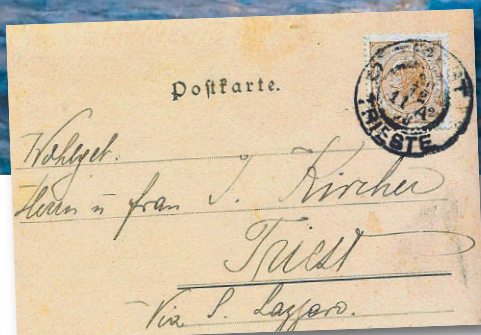 Postkarte.
TRIESTE
Wohlgeb.
Herrn u frau J. Kircher
Triest
Via S. Lazzaro.